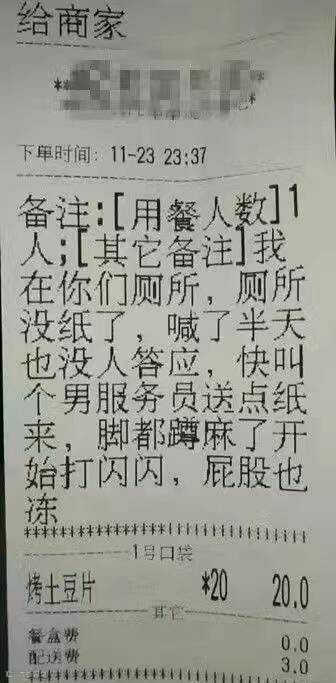 给商家
下单时间: 11-23 23:37
备注:[用餐人数]1
人;[其它备注]我
在你们厕所，厕所
没纸了，喊了半天
也没人答应，快叫
个男服务员送点纸
来，脚都蹲麻了开
始打闪闪，屁股也
冻
1号口袋
烤土豆片 *20 20.0
其它
餐盒费 0.0
配送费 3.0